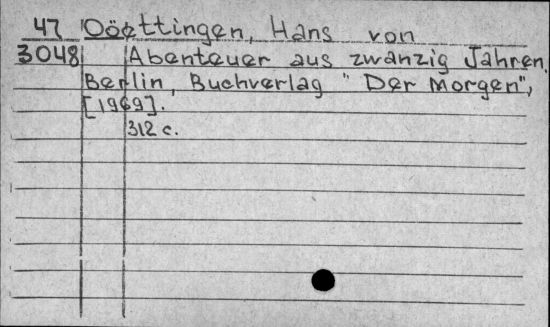 47 Oöettingen, Hans von
3048 Abenteuer aus zwanzig Jahren.
Berlin, Buchverlag "Der Morgen",
[1969].
312 c.